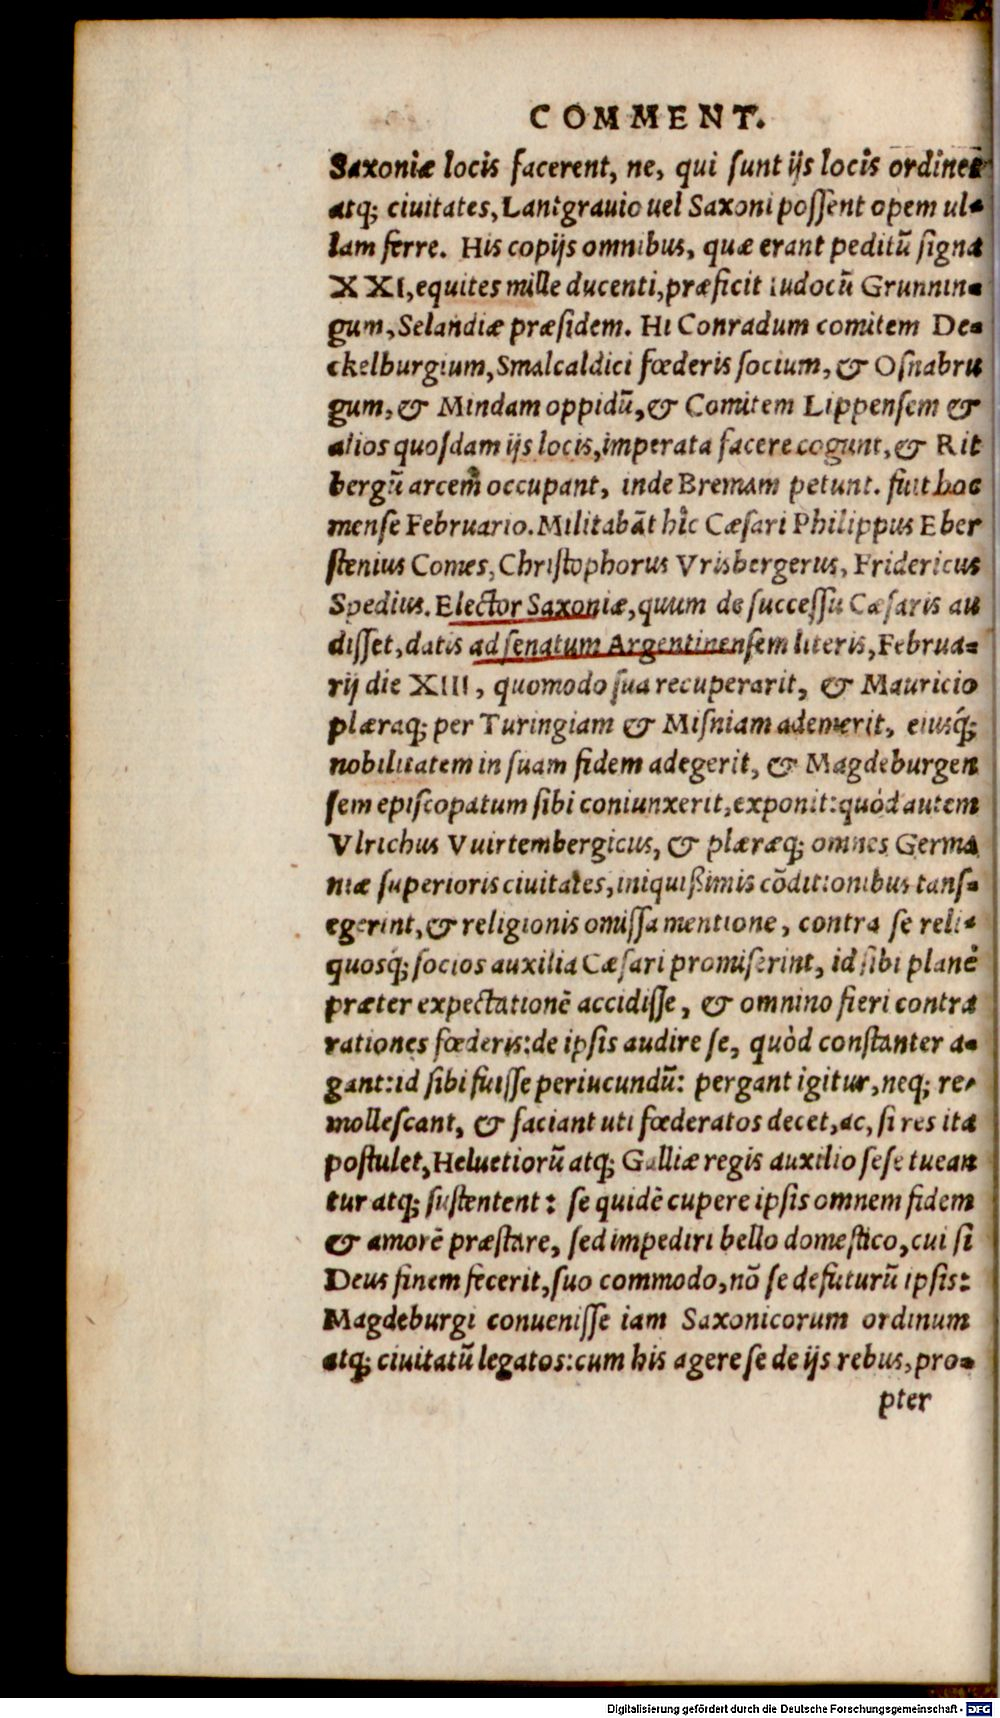 COMMENT.
Saxoniæ locis facerent, ne, qui sunt ijs locis ordines
atq; ciuitates, Lantgrauio uel Saxoni possent opem ul-
lam ferre. His copijs omnibus, quæ erant peditũ signa
XXI, equites mille ducenti, præficit iudocũ Grunnin-
gum, Selandiæ præsidem. Hi Conradum comitem De-
ckelburgium, Smalcaldici fœderis socium, & Osnabru
gum, & Mindam oppidũ, & Comitem Lippensem &
alios quosdam ijs locis, imperata facere cogunt, & Rit
bergũ arcem occupant, inde Bremam petunt. fuit hoc
mense Februario. Militabãt hîc Cæsari Philippus Eber
stenius Comes, Christophorus Vrisbergerus, Fridericus
Spedius. Elector Saxoniæ, quum de successu Cæsaris au
disset, datis ad senatum Argentinensem literis, Februa-
rij die XIII, quomodo sua recuperarit, & Mauricio
plæraq; per Turingiam & Misniam ademerit, eiusq́;
nobilitatem in suam fidem adegerit, & Magdeburgen
sem episcopatum sibi coniunxerit, exponit: quòd autem
Vlrichus Vuirtembergicus, & plæræq; omnes Germa
niæ superioris ciuitates, iniquißimis cõditionibus tans-
egerint, & religionis omissa mentione, contra se reli-
quosq́; socios auxilia Cæsari promiserint, id sibi planè
præter expectationẽ accidisse, & omnino fieri contra
rationes fœderis: de ipsis audire se, quòd constanter a-
gant: id sibi fuisse periucundũ: pergant igitur, neq; re-
mollescant, & faciant uti fœderatos decet, ac, si res ita
postulet, Heluetiorũ atq; Galliæ regis auxilio sese tuean
tur atq; sustentent: se quidẽ cupere ipsis omnem fidem
& amorẽ præstare, sed impediri bello domestico, cui si
Deus finem fecerit, suo commodo, nõ se defuturũ ipsis:
Magdeburgi conuenisse iam Saxonicorum ordinum
atq; ciuitatũ legatos: cum his agere se de ijs rebus, pro-
pter
Digitalisierung gefördert durch die Deutsche Forschungsgemeinschaft - DFG